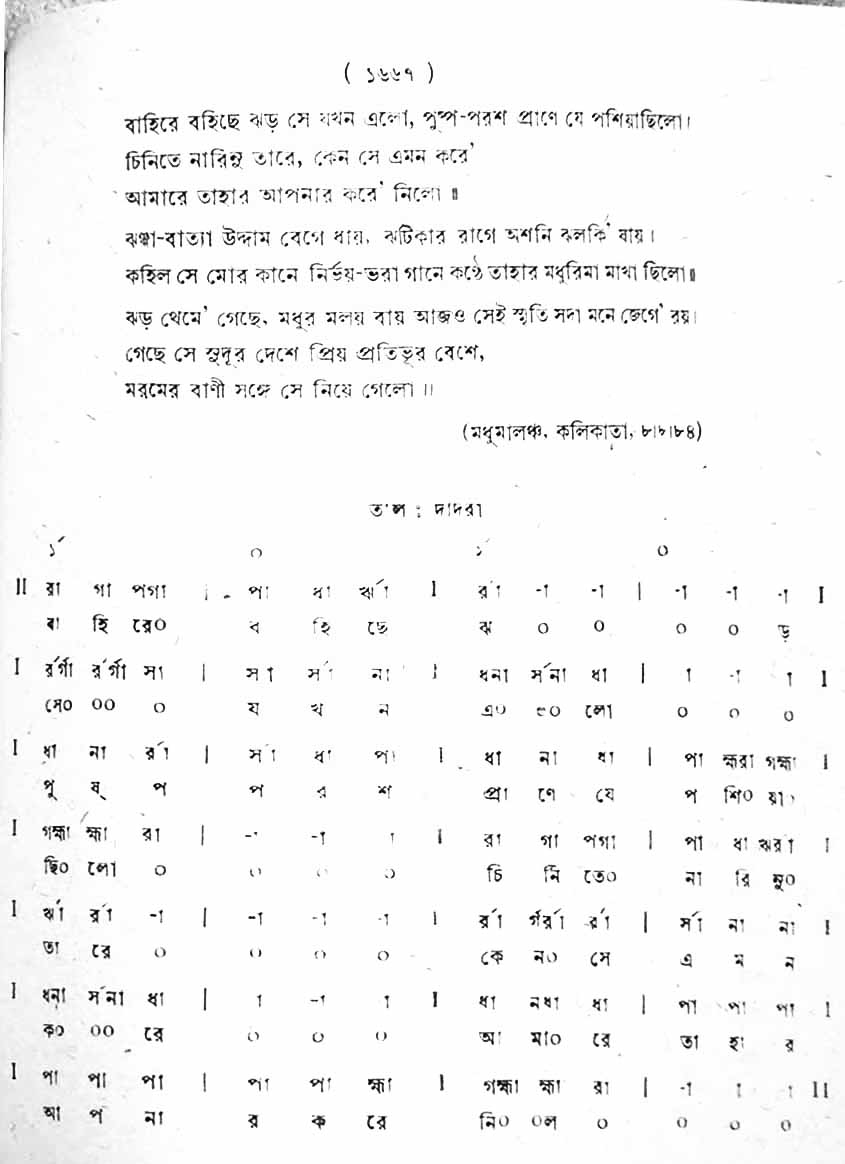 ( ১৬৬৭ )
বাহিরে বহিছে ঝড় সে যখন এলো, পুষ্প-পরশ প্রাণে যে পশিয়াছিলো।
চিনিতে নারিনু তারে, কেন সে এমন করে'
আমারে তাহার আপনার করে' নিলো॥
ঝঞ্ঝা-বাত্যা উদ্দাম বেগে ধায়, ঝটিকার রাগে অশনি ঝলকি' যায়।
কহিল সে মোর কানে নির্ভয়-ভরা গানে কণ্ঠে তাহার মধুরিমা মাখা ছিলো॥
ঝড় থেমে' গেছে, মধুর মলয় বায় আজও সেই স্মৃতি সদা মনে জেগে' রয়।
গেছে সে সুদূর দেশে প্রিয় প্রতিভূর বেশে,
মরমের বাণী সঙ্গে সে নিয়ে গেলো॥
(মধুমালঞ্চ, কলিকাতা, ৮।৯।৮৪)
তাল : দাদরা
১´ ০ ১´ ০
II রা গা পগা | পা ধা র্ঋা I র্রা -া -া | -া -া -া I
বা হি রে০ ব হি ছে ঝ ০ ০ ০ ০ ড়
I র্রর্গা র্রর্গা র্সা | র্সা র্সা না I ধনা র্সনা ধা | া -া া I
সে০ ০০ ০ য খ ন এ০ ০০ লো ০ ০ ০
I ধা না র্রা | র্সা ধা পা I ধা না ধা | পা হ্মরা গহ্মা I
পু ষ্ প প র শ প্রা ণে যে প শি০ য়া০
I গহ্মা হ্মা রা | -া -া া I রা গা পগা | পা ধা ঋরা I
ছি০ লো ০ ০ ০ ০ চি নি তে০ না রি নু০
I র্ঋা র্রা -া | -া -া -া I র্রা র্গর্রা র্রা | র্সা না না I
তা রে ০ ০ ০ ০ কে ন০ সে এ ম ন
I ধনা র্সনা ধা | া -া া I ধা নধা ধা | পা পা পা I
ক০ ০০ রে ০ ০ ০ আ মা০ রে তা হা র
I পা পা পা | পা পা হ্মা I গহ্মা হ্মা রা | -া া া II
আ প না র ক রে নি০ ০ল ০ ০ ০ ০